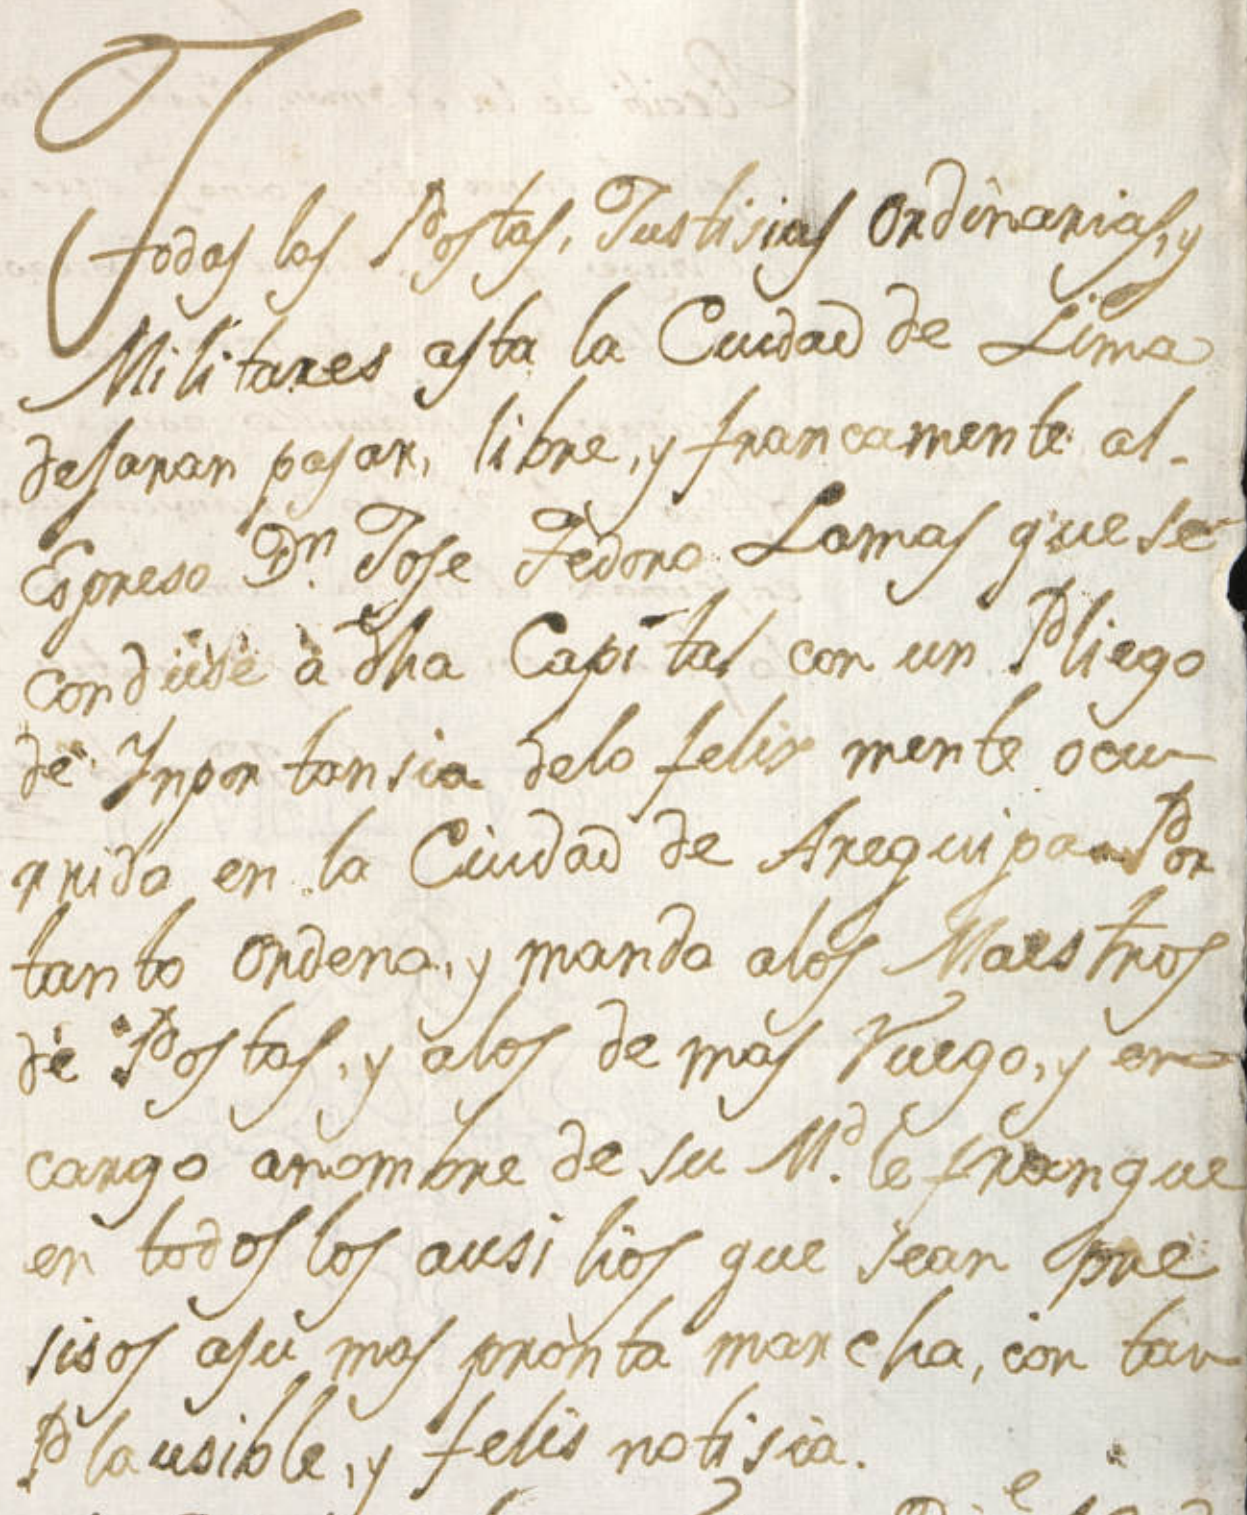 Todas las Postas, Justisias Ordinarias, y
Militares asta la Ciudad de Lima
desaran pasar, libre, y francamente al-
Espreso Dn. Jose Fedoro Lamas que se
conduse à dha Capital con un Pliego
de Inportansia delo felix mente ocu-
rrido en la Ciudad de Arequipa Por
tanto Ordeno, y mando alos Maestros
de Postas, y alos de mas Ruego, y en-
cargo anombre de su Md. le franque
en todos los ausilios que sean pre
sisos asu mas pronta marcha, con tan
Plausible, y felis notisia.